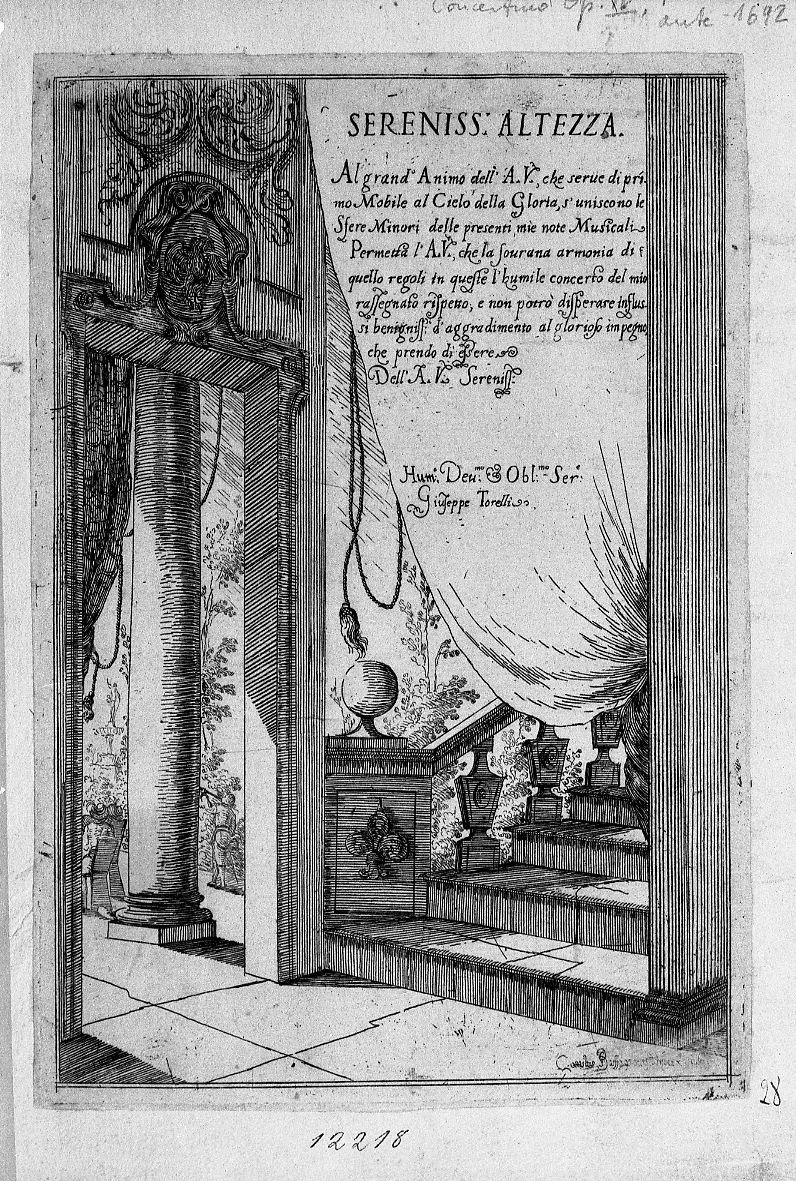 Concertino Op. IV ante - 1692
SERENISS.ᵃ ALTEZZA.
Al grand.ᵉ Animo dell' A. V.ᵃ, che serue di pri-
mo Mobile al Cielo della Gloria, s' uniscono le
Sfere Minori delle presenti mie note Musicali
Permetta l' A. V.ᵃ, che la sourana armonia di
quello regoli in queste l' humile concerto del mio
rassegnato rispetto, e non potrò disperare influs-
si benigniss.ⁱ d' aggradimento al glorioso impegno
che prendo di essere
Dell' A. V. Sereniss.ᵃ
Hum.ᵒ Deu.ᵐᵒ & Obl.ᵐᵒ Ser.ᵉ
Giuseppe Torelli
28
12218